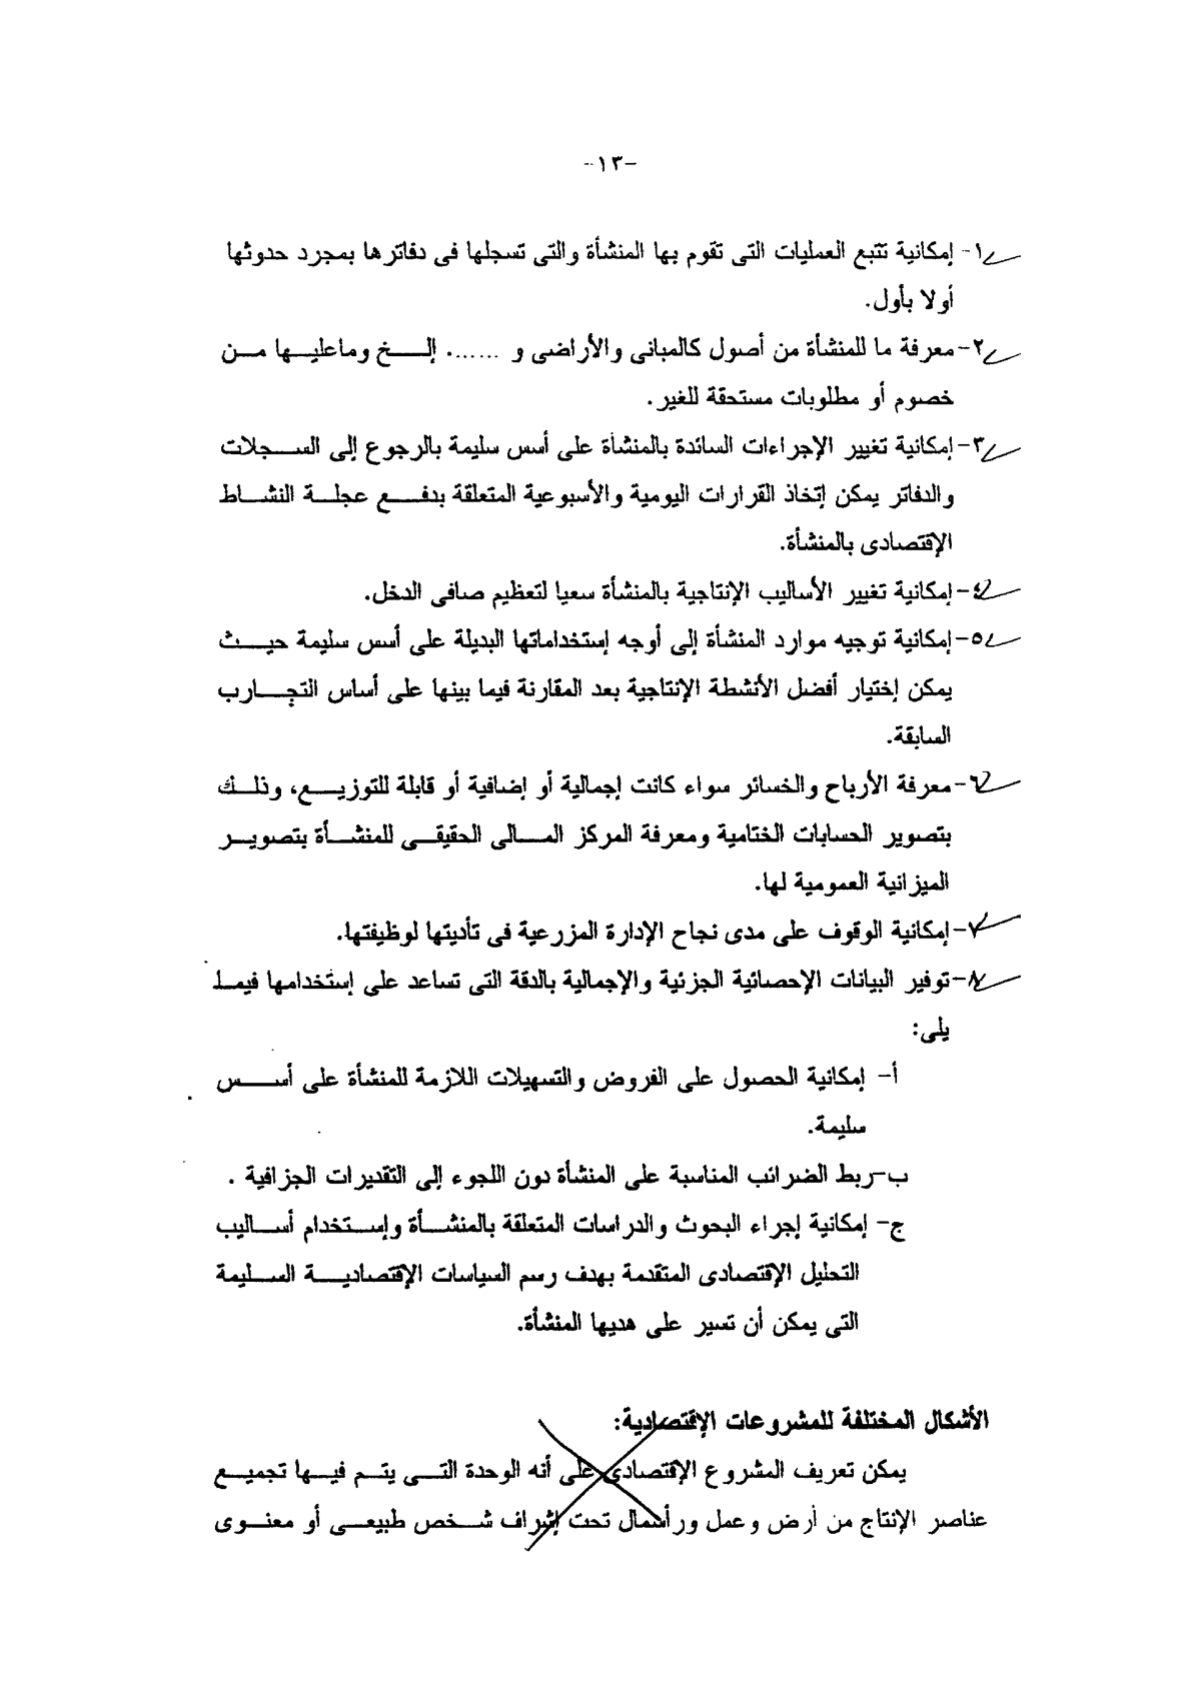 -١٣-
١- إمكانية تتبع العمليات التى تقوم بها المنشأة والتى تسجلها فى دفاترها بمجرد حدوثها
أولا بأول.
٢-معرفة ما للمنشأة من أصول كالمبانى والأراضى و ....... إلــــخ وماعليــها مــن
خصوم أو مطلوبات مستحقة للغير.
٣-إمكانية تغيير الإجراءات السائدة بالمنشأة على أسس سليمة بالرجوع إلى الســجلات
والدفاتر يمكن إتخاذ القرارات اليومية والأسبوعية المتعلقة بدفــــع عجلــة النشــاط
الإقتصادى بالمنشأة.
٤-إمكانية تغيير الأساليب الإنتاجية بالمنشأة سعيا لتعظيم صافى الدخل.
٥-إمكانية توجيه موارد المنشأة إلى أوجه إستخداماتها البديلة على أسس سليمة حيــث
يمكن إختيار أفضل الأنشطة الإنتاجية بعد المقارنة فيما بينها على أساس التجــارب
السابقة.
٦-معرفة الأرباح والخسائر سواء كانت إجمالية أو إضافية أو قابلة للتوزيــع، وذلــك
بتصوير الحسابات الختامية ومعرفة المركز المــالى الحقيقــى للمنشــأة بتصويــر
الميزانية العمومية لها.
٧-إمكانية الوقوف على مدى نجاح الإدارة المزرعية فى تأديتها لوظيفتها.
٨-توفير البيانات الإحصائية الجزئية والإجمالية بالدقة التى تساعد على إستخدامها فيمـا
يلى:
أ- إمكانية الحصول على القروض والتسهيلات اللازمة للمنشأة على أســــس
سليمة.
ب-ربط الضرائب المناسبة على المنشأة دون اللجوء إلى التقديرات الجزافية .
ج- إمكانية إجراء البحوث والدراسات المتعلقة بالمنشــأة وإســتخدام أســاليب
التحليل الإقتصادى المتقدمة بهدف رسم السياسات الإقتصاديــة الســليمة
التى يمكن أن تسير على هديها المنشأة.
الأشكال المختلفة للمشروعات الإقتصادية:
يمكن تعريف المشروع الإقتصادى على أنه الوحدة التــى يتــم فيــها تجميــع
عناصر الإنتاج من أرض وعمل ورأسمال تحت إشراف شــخص طبيعــى أو معنــوى